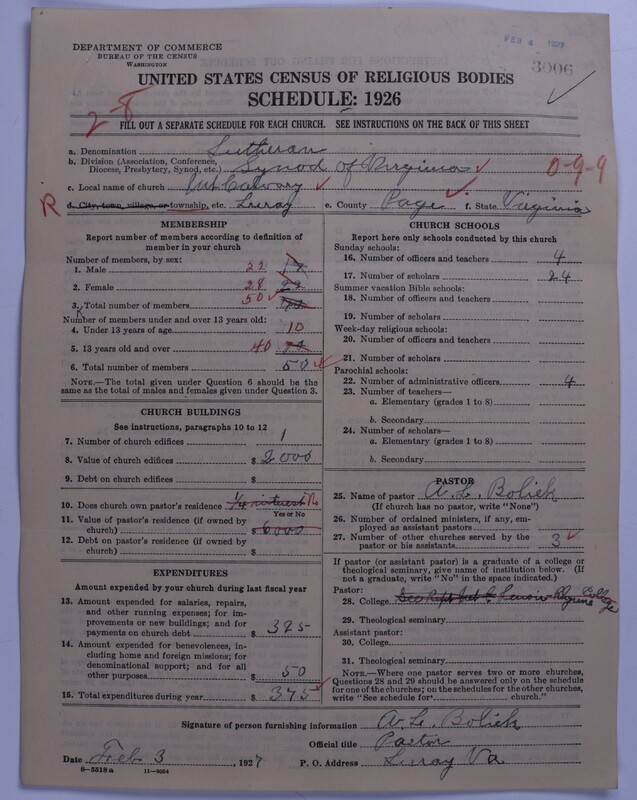 DEPARTMENT OF COMMERCE
BUREAU OF THE CENSUS
WASHINGTON
FEB 4 1927
3006
UNITED STATES CENSUS OF RELIGIOUS BODIES
SCHEDULE: 1926
2-8
FILL OUT A SEPARATE SCHEDULE FOR EACH CHURCH. SEE INSTRUCTIONS ON THE BACK OF THIS SHEET
a. Denomination Lutheran
b. Division (Association, Conference,
Diocese, Presbytery, Synod, etc.) Synod of Virginia
0-9-9
c. Local name of church Mt Calvary
R d. City, town, village, or township, etc. Luray e. County Page f. State Virginia
MEMBERSHIP
Report number of members according to definition of
member in your church
Number of members, by sex:
1. Male 22
2. Female 28
3. Total number of members 50
Number of members under and over 13 years old:
4. Under 13 years of age 10
5. 13 years old and over 40
6. Total number of members 50
NOTE.—The total given under Question 6 should be the
same as the total of males and females given under Question 3.
CHURCH BUILDINGS
See instructions, paragraphs 10 to 12
7. Number of church edifices 1
8. Value of church edifices $ 2000
9. Debt on church edifices $
10. Does church own pastor's residence 1/4 interest
Yes or No
11. Value of pastor's residence (if owned by
church) $ 6000
12. Debt on pastor's residence (if owned by
church) $
EXPENDITURES
Amount expended by your church during last fiscal year
13. Amount expended for salaries, repairs,
and other running expenses; for im-
provements or new buildings; and for
payments on church debt $ 325
14. Amount expended for benevolences,
including home and foreign missions; for
denominational support; and for all
other purposes 50
15. Total expenditures during year $ 375
CHURCH SCHOOLS
Report here only schools conducted by this church
Sunday schools:
16. Number of officers and teachers 4
17. Number of scholars 24
Summer vacation Bible schools:
18. Number of officers and teachers
19. Number of scholars
Week-day religious schools:
20. Number of officers and teachers
21. Number of scholars
Parochial schools:
22. Number of administrative officers 4
23. Number of teachers—
a. Elementary (grades 1 to 8)
b. Secondary
24. Number of scholars—
a. Elementary (grades 1 to 8)
b. Secondary
PASTOR
25. Name of pastor A. L. Bolick
(If church has no pastor, write "None")
26. Number of ordained ministers, if any, em-
ployed as assistant pastors
27. Number of other churches served by the
pastor or his assistants 3
If pastor (or assistant pastor) is a graduate of a college or
theological seminary, give name of institution below. (If
not a graduate, write "No" in the space indicated.)
Pastor:
28. College Lenoir Rhyne College
29. Theological seminary
Assistant pastor:
30. College
31. Theological seminary
NOTE.—Where one pastor serves two or more churches,
Questions 28 and 29 should be answered only on the schedule
for one of the churches; on the schedules for the other churches,
write "See schedule for church."
Signature of person furnishing information A. L. Bolick
Official title Pastor
Date Feb 3, 1927 P. O. Address Luray Va
8-5518 a 11-9054